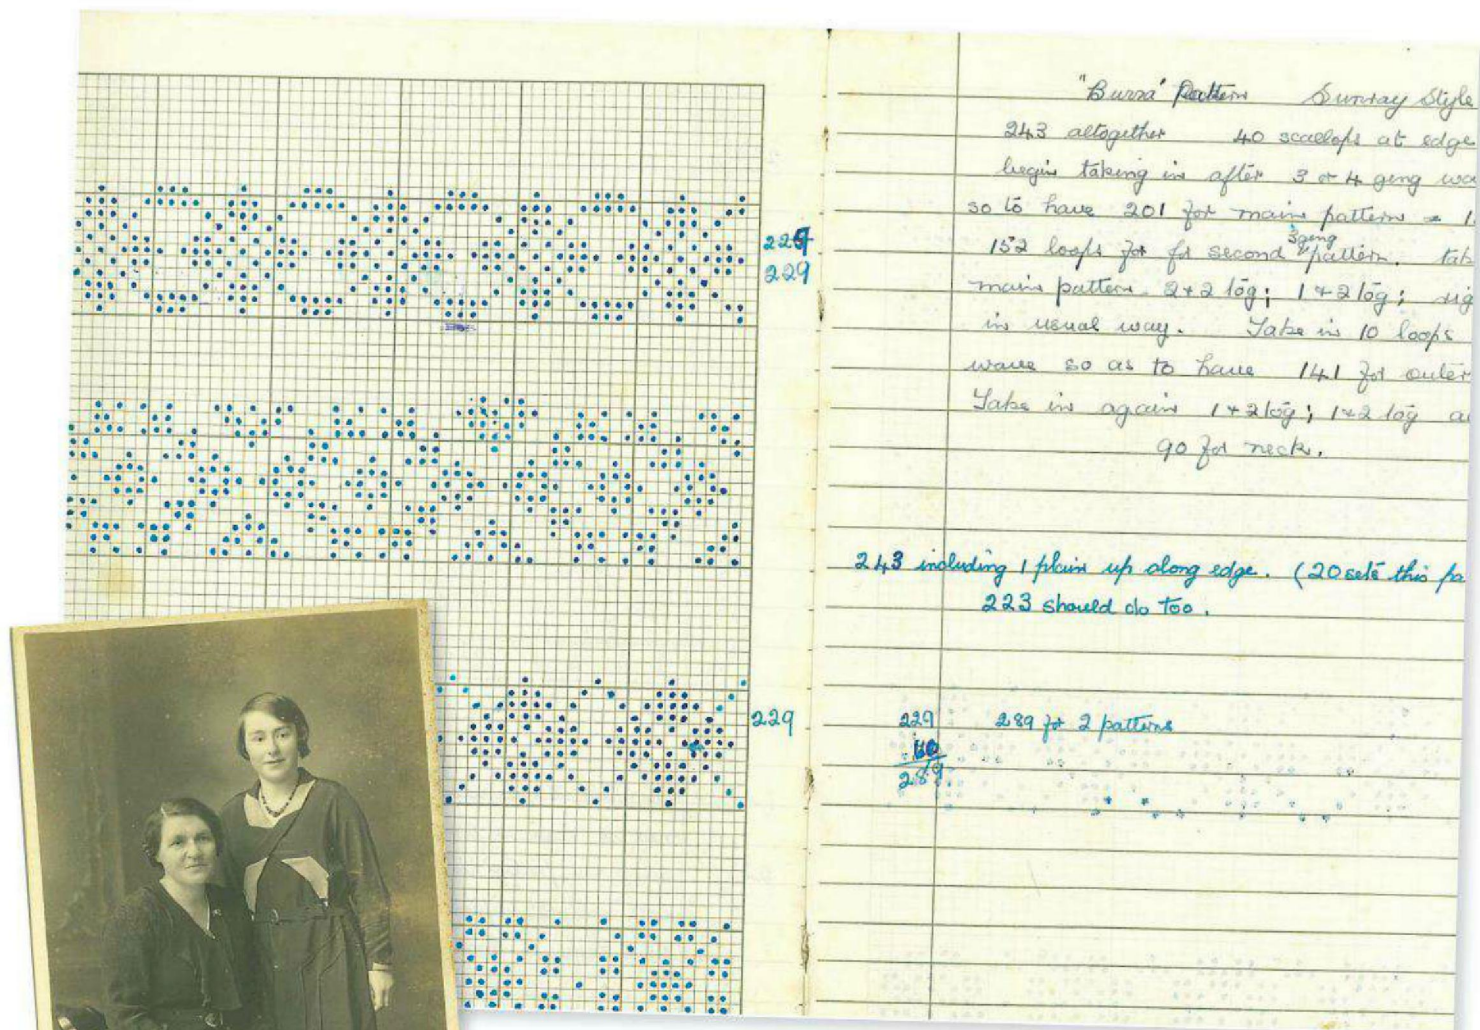 224
229
229
"Burra" Pattern Sunray Style
243 altogether 40 scallops at edge
begin taking in after 3 or 4 geng
so to have 201 for main pattern
3geng
152 loops for second pattern.
main pattern. 2+2 tog; 1+2 tog;
in usual way. Take in 10 loops
wave so as to have 141 for outer
Take in again 1+2 tog; 1+2 tog
90 for neck.
243 including 1 plain up along edge. (20 sets this
223 should do too.
229 289 for 2 patterns
60
289.